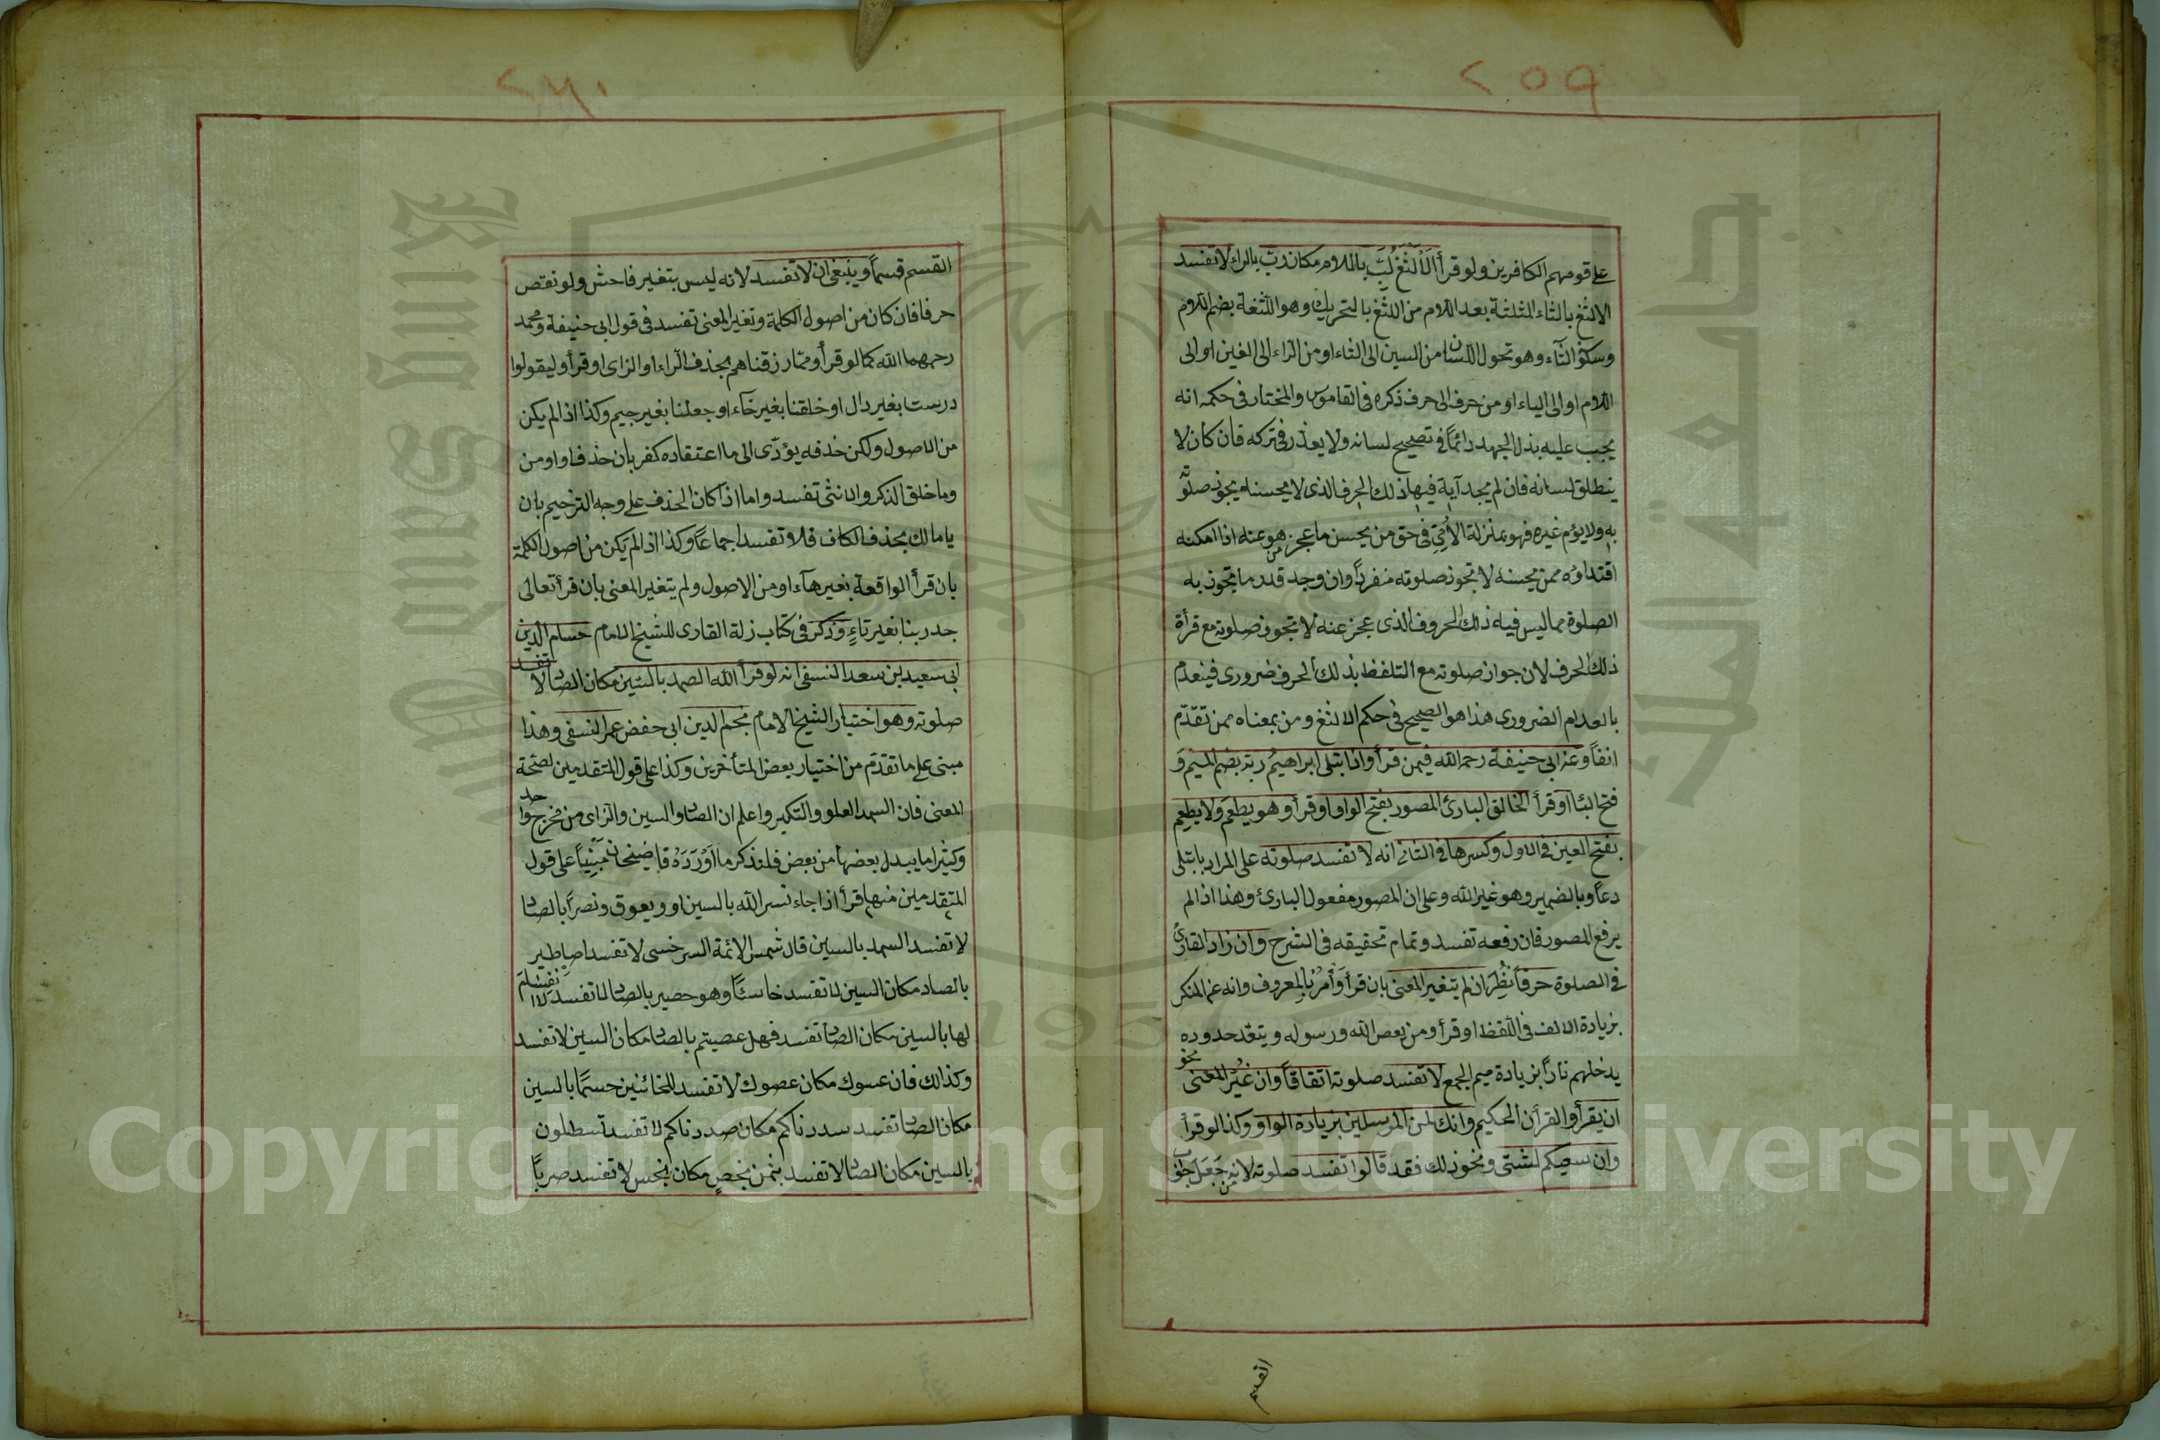 ٢٥٩
على قومهم الكافرين ولو قرأ الالثغ لب باللام مكان رب بالراء لا تفسد
الالثغ بالثاء المثلثة بعد اللام من اللثغ بالتحريك وهو اللثغة بضم اللام
وسكون الثاء وهو تحول اللسان من السين الى الثاء او من الراء الى الغين او الى
اللام او الى الياء او من حرف الى حرف ذكره في القاموس والمختار في حكمه انه
يجب عليه بذل الجهد دائما في تصحيح لسانه ولا يعذر في تركه فان كان لا
ينطلق لسانه فان لم يجد آية فيها ذلك الحرف الذى لا يحسنه يجوز صلوته
به ولا يؤم غيره فهو بمنزلة الامي في حق من يحسن ما عجز هو عنه اذا امكنه
اقتداؤه ممن يحسنه لا تجوز صلوته منفردا وان وجد قدر ما تجوز به
الصلوة مما ليس فيه ذلك الحروف الذى عجز عنه لا تجوز صلوته مع قرأة
ذلك الحرف لان جواز صلوته مع التلفظ بذلك الحرف ضرورى فينعدم
بانعدام الضرورى هذا هو الصحيح في حكم الالثغ ومن بمعناه ممن تقدم
انفا وعن ابى حنيفة رحمه الله فيمن قرأ واذ ابتلى ابراهيم ربه بضم الميم و
فتح البا او قرأ الخالق البارئ المصور بفتح الواو او قرأ وهو يطعم ولا يطعم
بفتح العين في الاول وكسرها في الثانى انه لا تفسد صلوته على المراد بابتلى
دعا وبالضمير وهو غير الله وعلى ان المصور مفعول البارئ وهذا اذا لم
يرفع المصور فان رفعه تفسد وتمام تحقيقه في الشرح وان زاد القارئ
في الصلوة حرفا نظر ان لم يتغير المعنى بان قرأ وأمر بالمعروف وانه عن المنكر
بزيادة الالف في اللفظ او قرأ ومن يعص الله ورسوله ويتعد حدوده
يدخلهم نارا بزيادة ميم الجمع لا تفسد صلوته اتفاقا وان غير المعنى نحو
ان يقرأ والقرأن الحكيم وانك لمن المرسلين بزيادة الواو وكذا لو قرأ
وان سعيكم لشتى ونحو ذلك فقد قالوا تفسد صلوته لانه جعل جواب
القسم
٢٦٠
القسم قسما وينبغى ان لا تفسد لانه ليس بتغير فاحش ولو نقص
حرفا فان كان من اصول الكلمة وتغير المعنى تفسد في قول ابى حنيفة ومحمد
رحمهما الله كما لو قرأ ومما رزقناهم بحذف الراء او الزاى او قرأ وليقولوا
درست بغير دال او خلقنا بغير خاء او جعلنا بغير جيم وكذا اذا لم يكن
من الاصول ولكن حذفه يؤدى الى ما اعتقاده كفر بان حذف واو من
وما خلق الذكر والانثى تفسد واما اذا كان الحذف على وجه الترخيم بان
يا مالك بحذف الكاف فلا تفسد اجماعا وكذا اذا لم يكن من اصول الكلمة
بان قرأ الواقعة بغير هاء او من الاصول ولم يتغير المعنى بان قرأ تعالى
جد ربنا بغير تاء وذكر في كتاب زلة القارى للشيخ الامام حسام الدين
ابى سعيد بن سعد النسفى انه لو قرأ الله الصمد بالسين مكان الصاد لا تفسد
صلوته وهو اختيار الشيخ الامام نجم الدين ابى حفص عمر النسفى وهذا
مبنى على ما تقدم من اختيار بعض المتأخرين وكذا على قول المتقدمين لصحة
المعنى فان السمد العلو والتكبر واعلم ان الصاد والسين والزاى من مخرج واحد
وكثيرا ما يبدل بعضها من بعض فلنذكر ما اورده قاضيخان مبنيا على قول
المتقدمين منها قرأ اذا جاء نسر الله بالسين او ويعوق ونصرا بالصاد
لا تفسد السمد بالسين قال شمس الائمة السرخسى لا تفسد اصاطير
بالصاد مكان السين لا تفسد خاسئا وهو حصير بالصاد لا تفسد لا انفسام
لها بالسين مكان الصاد تفسد فهل عصيتم بالصاد مكان السين لا تفسد
وكذالك فان عسوك مكان عصوك لا تفسد للخائنين حسما بالسين
مكان الصاد تفسد سددناكم مكان صددناكم لا تفسد تسطلون
بالسين مكان الصاد لا تفسد بثمن بخص مكان بخس لا تفسد صربا